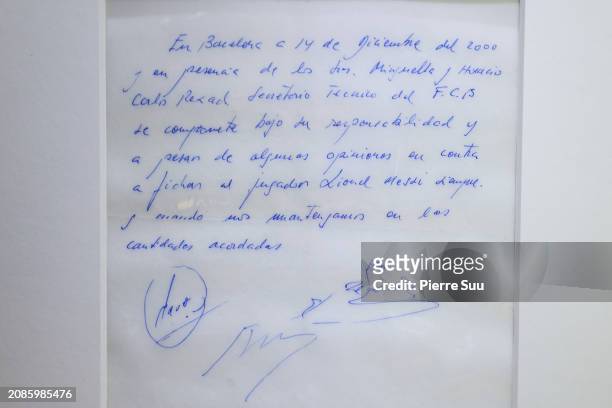 En Barcelona a 14 de Diciembre del 2000
y en presencia de los Srs. Minguella y Horacio
Carlos Rexach Secretario Técnico del F.C.B
se compromete bajo su responsabilidad y
a pesar de algunas opiniones en contra
a fichar al jugador Lionel Messi siempre
y cuando nos mantengamos en las
cantidades acordadas
gettyimages
Credit: Pierre Suu
2085985476